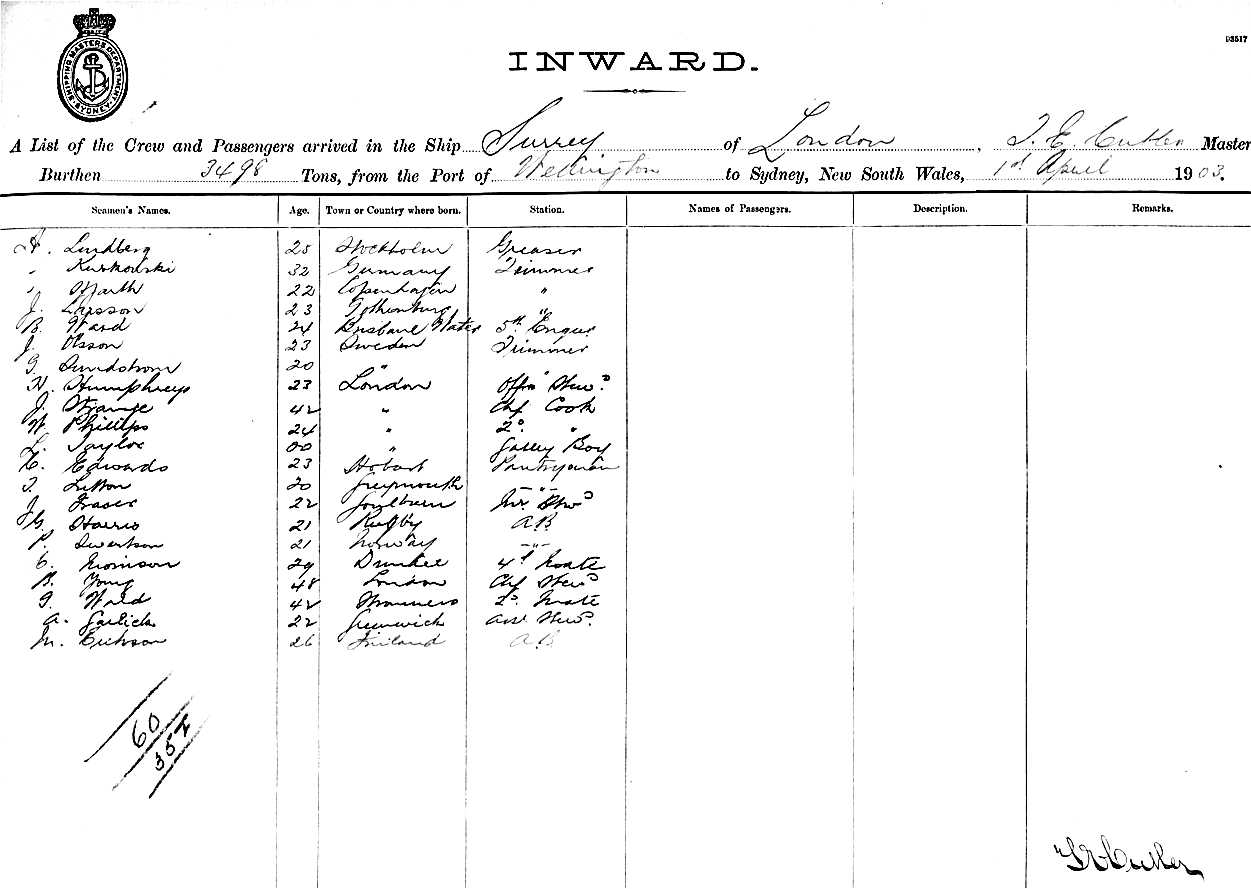 SHIPPING MASTERS DEPARTMENT
SYDNEY
D3517
INWARD.
A List of the Crew and Passengers arrived in the Ship Surrey of London, T. E. Cutler Master
Burthen 3498 Tons, from the Port of Wellington to Sydney, New South Wales, 1st April 1903.
Seamen's Names. Age. Town or Country where born. Station. Names of Passengers. Description. Remarks.
A. Lindberg 25 Stockholm Greaser
" 32 Germany Trimmer
" 22 Copenhagen "
J. Larsson 23 Gothenburg "
B. Ward 24 Brisbane Water 5th Engnr
J. Olsson 23 Sweden Trimmer
G. Sundstrom 20 " "
H. Humphreys 23 London Offrs Stewd
J. Strange 42 " Chf Cook
W. Phillips 24 " 2o "
L. Taylor 20 " Galley Boy
E. Edwards 23 Hobart Pantryman
T. 20 Greymouth - " -
J. Fraser 22 Goulburn Stwd
G. Harris 21 Rugby A.B
P. 21 Norway - " -
C. 29 Dundee 4th Mate
B. Young 48 London Chf Stewd
G. 42 2o Mate
A. Garlick 22 Greenwich Asst Stewd.
M. Erikson 26 Finland A.B
60
357
T E Cutler